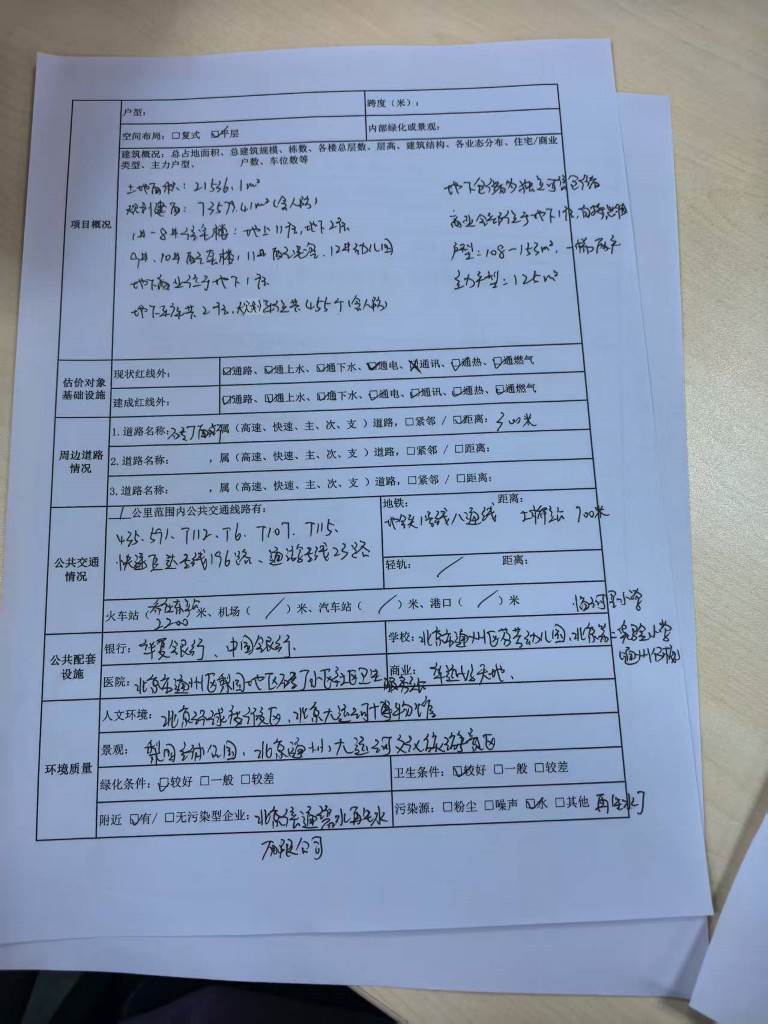 项目概况
户型：
跨度（米）：
空间布局：□复式 ☑平层
内部绿化或景观：
建筑概况：总占地面积、总建筑规模、栋数、各楼总层数、层高、建筑结构、各业态分布、住宅/商业
类型、主力户型、 户数、车位数等
土地面积：21536.1m²
规划建面：73577.41m²(含人防)
1#-8#住宅楼：地上11层,地下2层
9#、10#配套楼，11#配电室，12#幼儿园
地下商业位于地下1层
地下车库共2层，规划车位共455个(含人防)
地下仓储为独立可售仓储
商业全部位于地下1层，自持出租
户型：108-153m²，一梯两户
主力户型：125m²
估价对象
基础设施
现状红线外： ☑通路、☑通上水、☑通下水、☑通电、☑通讯、☑通热、☑通燃气
建成红线外： ☑通路、☑通上水、☑通下水、☑通电、☑通讯、☑通热、☑通燃气
周边道路
情况
1.道路名称： 属（高速、快速、主、次、支）道路，□紧邻 / ☑距离：300米
2.道路名称： ，属（高速、快速、主、次、支）道路，□紧邻 / □距离：
3.道路名称： ，属（高速、快速、主、次、支）道路，□紧邻 / □距离：
公共交通
情况
1公里范围内公共交通线路有：
435、591、T112、T6、T107、T115、
快速直达专线196路、通游专线23路
地铁： 距离：
地铁1号线八通线 700米
轻轨： / 距离：
火车站（ 2200 ）米、机场（ / ）米、汽车站（ / ）米、港口（ / ）米
公共配套
设施
银行：华夏银行、中国银行.
临河里小学
学校：北京市通州区 幼儿园、北京第二实验小学
(通州分校)
医院：北京市通州区梨园地区 小区社区卫生
服务站
商业：
环境质量
人文环境：北京环球度假区、北京大运河博物馆
景观：梨园主题公园、北京通州大运河文化旅游景区
绿化条件：☑较好 □一般 □较差
卫生条件：☑较好 □一般 □较差
附近 ☑有/ □无污染型企业：北京信通碧水再生水
有限公司
污染源：□粉尘 □噪声 ☑水 □其他 再生水厂